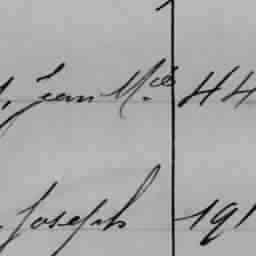 Jean M.cel 44
Joseph 191